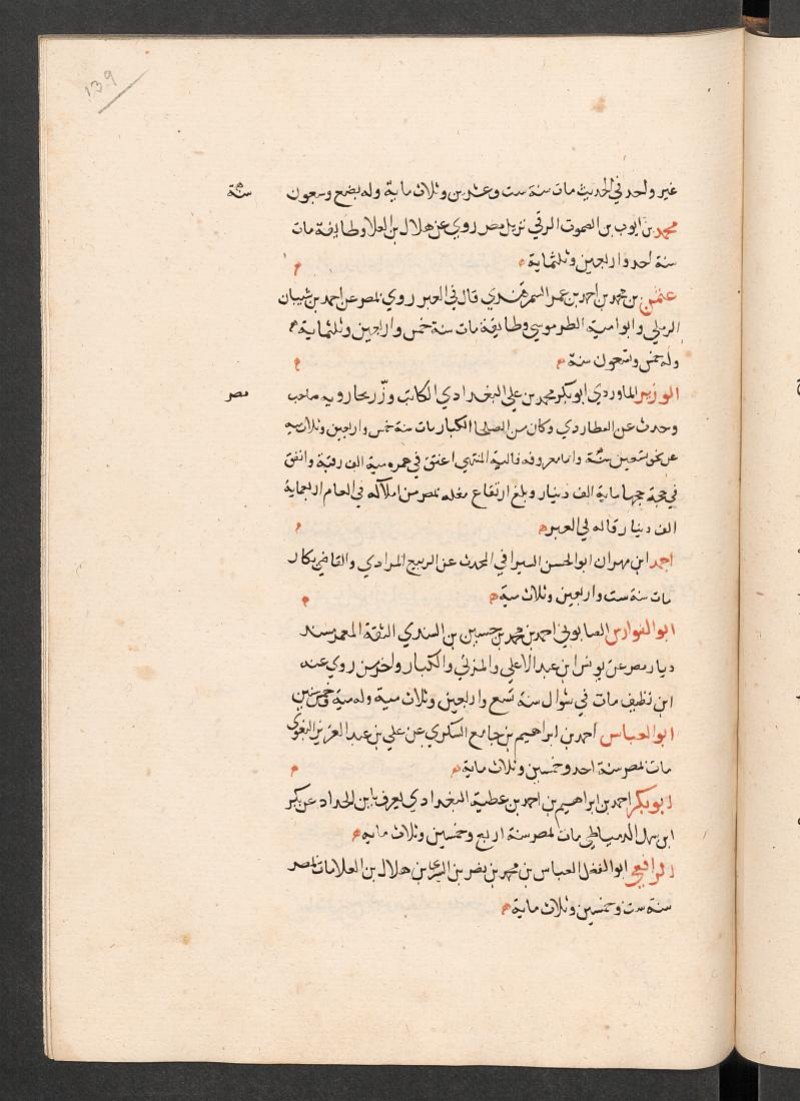 139
غير واحد في الحديث مات سنة ست وعشرين وثلاث ماية وله بضع وسبعون سنة
محمد بن ايوب بن الصموت الرقي نزيل مصر روي عن هلال بن العلا وطايفة مات
سنة احد واربعين وثلثماية
عثمن بن محمد بن احمد بن عمر السمرقندي قال في العبر روي بمصر عن احمد بن شيبان
الرملي وابو امية الطرسوسي وطايفة مات سنة خمس واربعين وثلثماية
وله خمس وتسعون سنة
الوزير الماوردي ابو بكر محمد بن علي البغدادي الكاتب وزر بحارويه صاحب مصر
وحدث عن العطاردي وكان من الصلحا الكبار مات سنة خمس واربعين وثلاث مية
عن نحو تسعين سنة وانا معروفه فاليه المنتهي اعتق في عمره مية الف رقبة وانفق
في حجة حجها ماية الف دينار وبلغ ارتفاع مغله بمصر من املاكه في العام اربعماية
الف دينار قاله في العبر
احمد ابن مهران ابو الحسن السيرافي المحدث عن الربيع المرادي والقاضي بكار
مات سنة ست واربعين وثلاث مية
ابو الفوارس الصابوني احمد بن محمد بن حسين بن السندي الثقة المعمر مسند
ديار مصر عن يونس ابن عبد الاعلي والمزني والكبار واخر من روي عنه
ابن نظيف مات في شوال سنة تسع واربعين وثلاث مية وله مية وخمس سنين
ابو العباس احمد بن ابراهيم بن جامع السكري عن علي بن عبد العزيز البغوي
مات بمصر سنة احد وخمسين وثلاث ماية
ابو بكر احمد بن ابراهيم بن احمد بن عطية البغدادي يعرف بابن الحداد عن بكر
ابن سهل الدمياطي مات بمصر سنة اربع وخمسين وثلاث ماية
الرافعي ابو الفضل العباس بن محمد بن نصر بن السري بن هلال بن العلا مات بمصر
سنة ست وخمسين وثلاث ماية